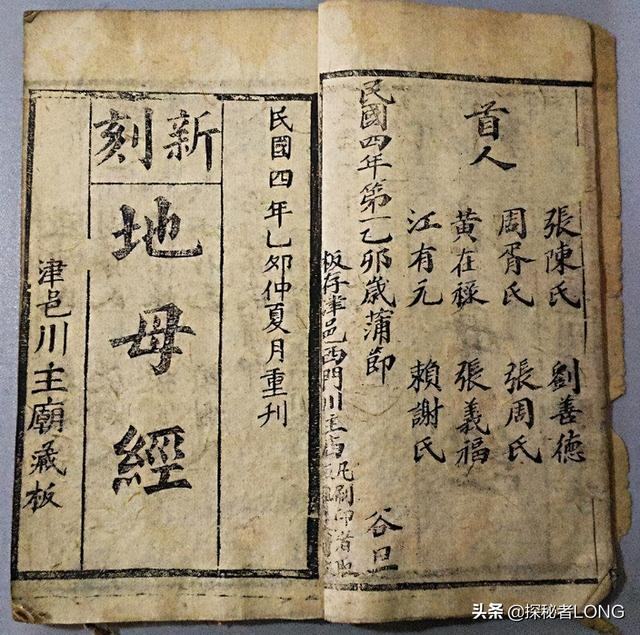 首人
張陳氏 劉善德
周胥氏 張周氏
黄在祿 張義福
江有元 賴謝氏
民國四年第一乙卯歲蒲節 谷旦
板存津邑西門川主庙凡刷印者
民國四年乙卯仲夏月重刊
新刻
地母經
津邑川主廟藏板
头条 @探秘者LONG